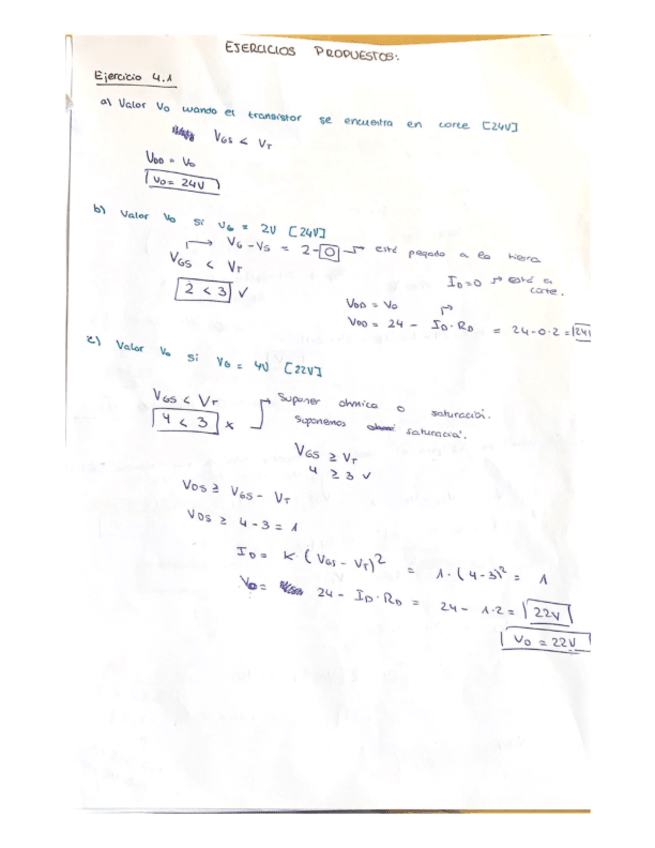 EJERCICIOS PROPUESTOS:
Ejercicio 4.1
a) Valor Vo cuando el transistor se encuentra en corte [24V]
VGS < VT
VDD = Vo
Vo = 24V
b) Valor Vo si VG = 2V [24V]
VG - VS = 2 - 0 → está pegado a la tierra
VGS < VT
ID = 0 → está en corte.
2 < 3 ✓
VDD = Vo
VDD = 24 - ID · RD = 24 - 0 · 2 = 24V
c) Valor Vo si VG = 4V [22V]
VGS < VT → Suponer ohmica o
4 < 3 x Suponemos saturació.
VGS ≥ VT
4 ≥ 3 ✓
VDS ≥ VGS - VT
VDS ≥ 4 - 3 = 1
ID = K · (VGS - VT)² = 1 · (4 - 3)² = 1
Vo = 24 - ID · RD = 24 - 1 · 2 = 22V
Vo = 22V